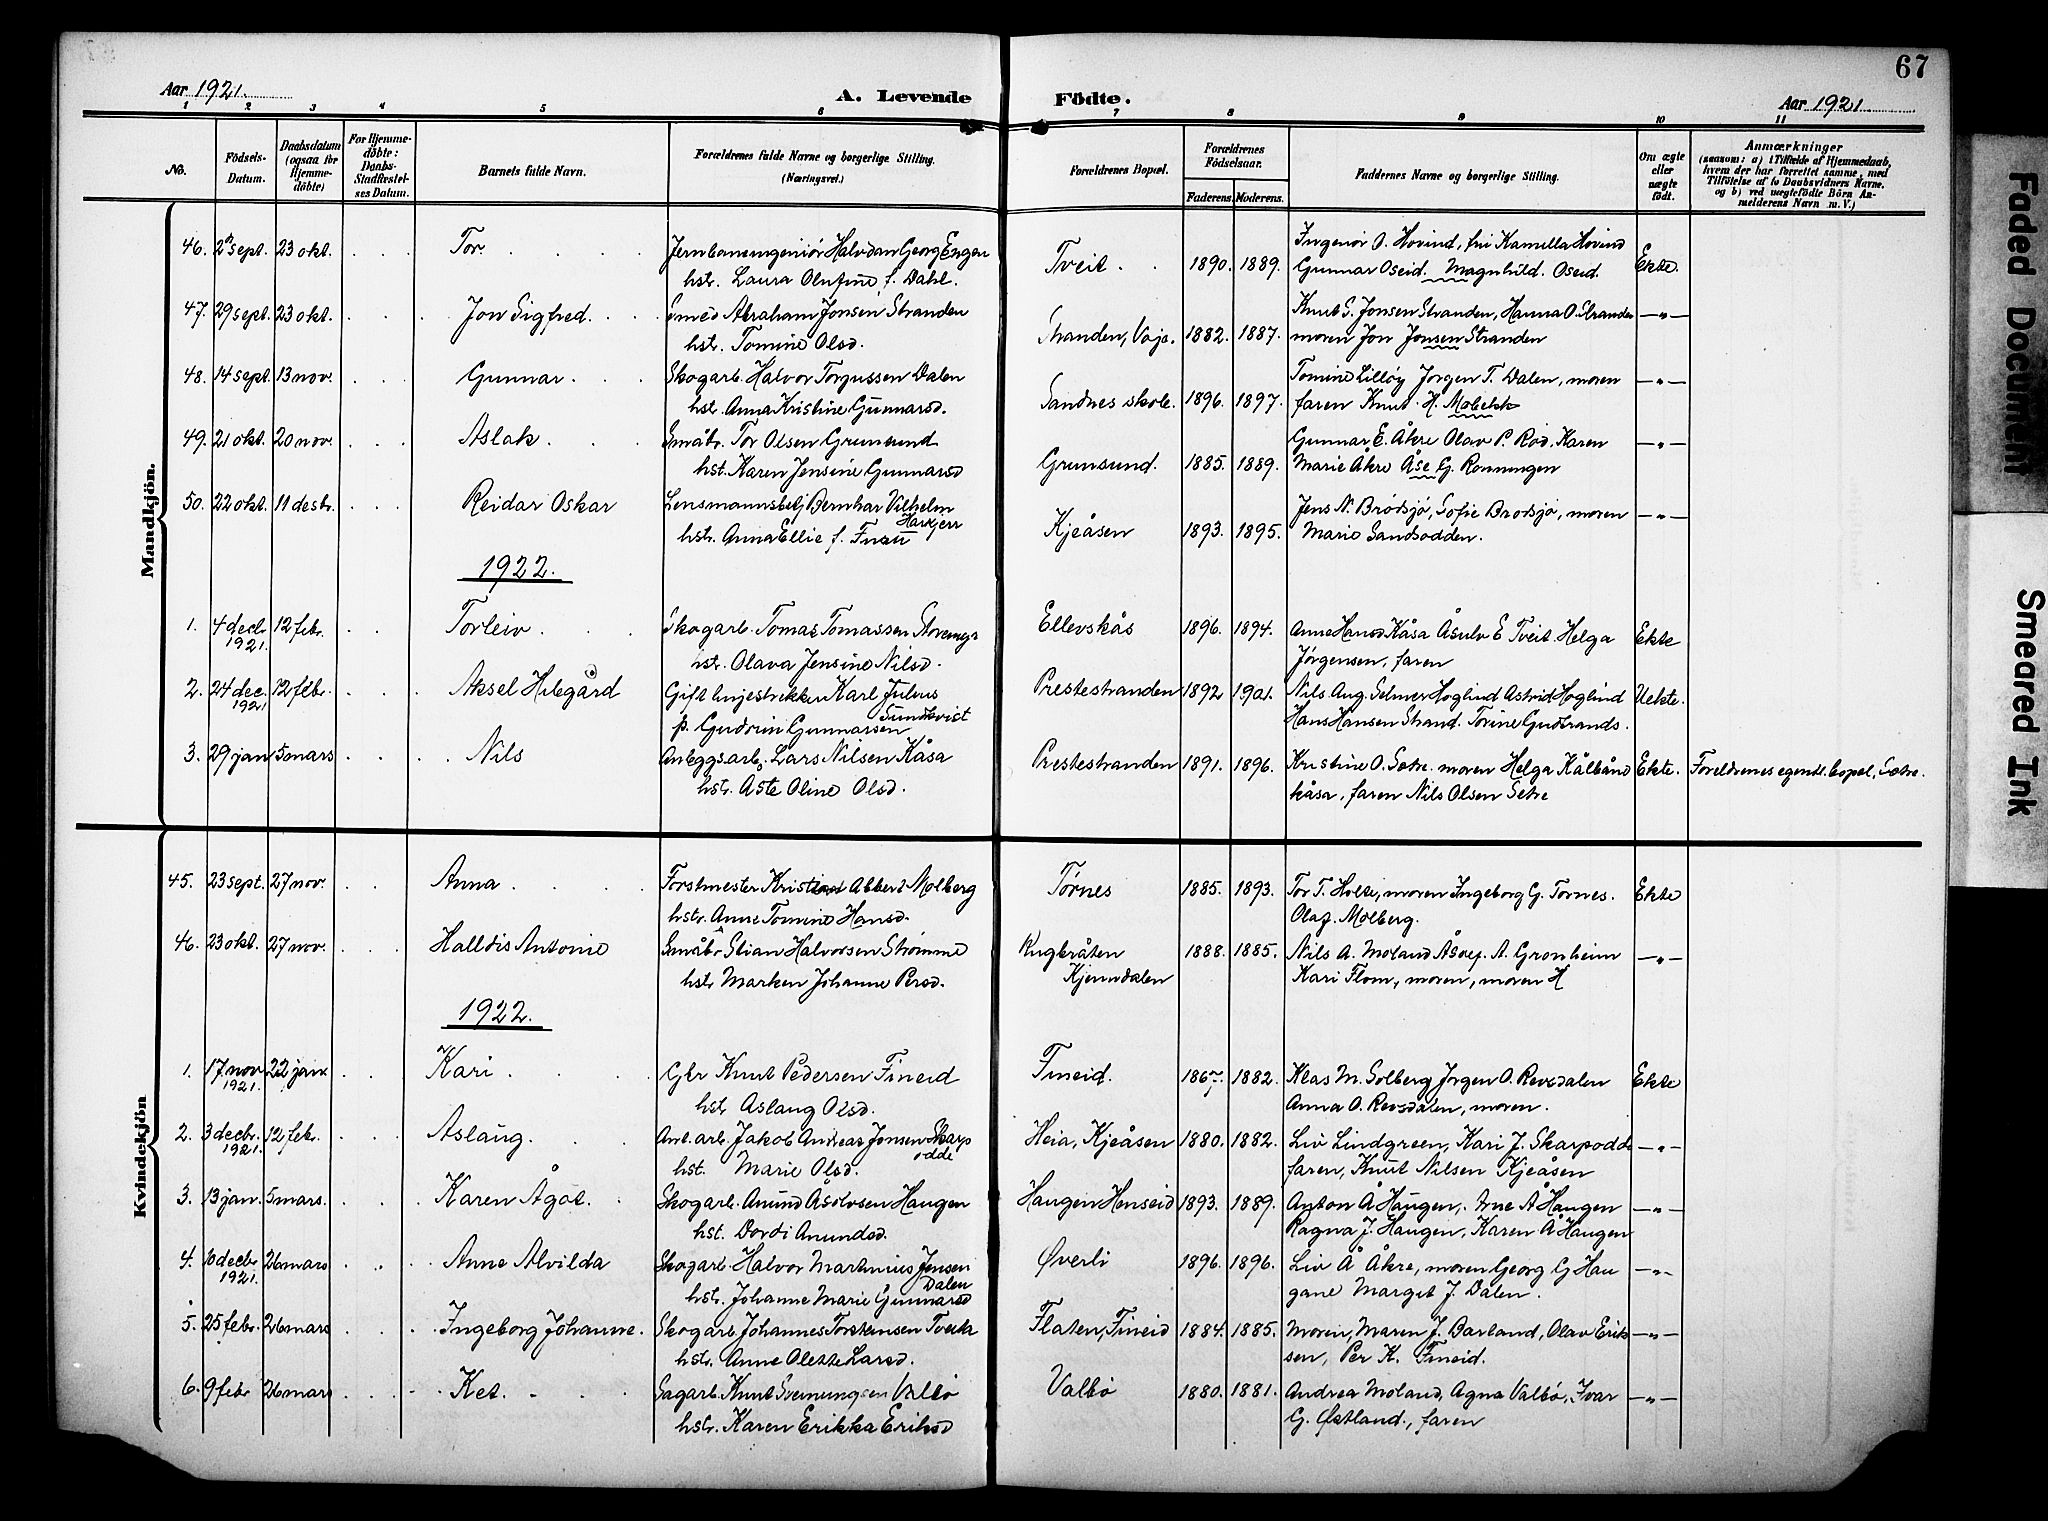 67
Aar 1921.
A. Levende Födte.
Aar 1921
1 2 3 4 5 6 7 8 9 10 11
No.
Födsels-Datum.
Daabsdatum (ogsaa for Hjemme-döbte)
For Hjemme-döbte: Daabs Stadfæstel-ses Datum.
Barnets fulde Navn.
Forældrenes fulde Navne og borgerlige Stilling.
(Næringsvei.)
Forældrenes Bopæl.
Forældrenes Födselsaar.
Faderens. Moderens.
Faddernes Navne og borgerlige Stilling.
Om ægte eller uægte födt.
Anmærkninger
(saasom: a) i Tilfælde af Hjemmedaab, hvem der har forrettet samme, med Tilföielse af to Daabsvidners Navne. og b) ved uægtefödte Börn Anmelderens Navn m. V.)
Mandkjön.
46. 2 sept. 23 okt. Tor. Jernbaneingeniör Halvdan Georg Engen Tveit. 1890. 1889. Ingeniör O. Hovind, fru Kamilla Hovind Ekte.
hstr. Laura Olufine f. Dahl. Gunnar Oseid. Magnhild. Oseid.
47. 29 sept. 23 okt. Jon Sigfred. Smed Abraham Jonsen Stranden Stranden, Vaje. 1882. 1887. Knut S. Jonsen Stranden, Hanna O. Stranden —"—
hstr. Tomine Olsd. moren Jon Jonsen Stranden
48. 14 sept. 13 nov. Gunnar. Skogarb. Halvor Torgussen Dalen Sandnes skole. 1896. 1897. Tomine Lilløy Jorgen T. Dalen, moren —"—
hst. Anna Kristine Gunnarsd. faren Knut. H. Mobekk
49. 21 okt. 20 nov. Aslak. Småbr. Tor Olsen Grunsund Grunsund. 1885. 1889. Gunnar E. Åkre Olav P. Rød. Karen —"—
hst. Karen Jensine Gunnarsd Marie Åkre Åse G. Ronningen
50. 22 okt. 11 desbr. Reidar Oskar Lensmannsbetj Bernhar Vilhelm Kjeåsen 1893. 1895. Jens N. Brødsjø, Sofie Brødsjø, moren —"—
hstr. Anna Ellie f. Marie Sandsodden.
1922.
1. 4 decbr. 1921. 12 febr. Torleiv. Skogarb. Tomas Tomassen Ellevskås 1896. 1894. Anne Hansd Kåsa Åsulv E Tveit Helga Ekte
hstr. Olava Jensine Nilsd. Jørgensen, faren
2. 24 dec. 1921 12 febr. Aksel Hilegård Gift linjestrekker Karl Julius Sundkvist Prestestranden 1892 1901. Nils Aug. Selmer Hoglind Astrid Hoglind Uekte.
p. Gudrun Gunnarsen Hans Hansen Strand. Torine Gudbrands.
3. 29 jan 5 mars Nils Anleggsarb. Lars Nilsen Kåsa Prestestranden 1891. 1896. Kristine O. Setre. moren Helga Kålbånd Ekte. Foreldrenes egentl. bopel, Setre.
hstr. Aste Oline Olsd. kåsa, faren Nils Olsen Setre
Kvindekjön
45. 23 sept. 27 nov. Anna Forstmester Kristian Abbert Molberg Tørnes 1885. 1893. Tor T. Holte, moren Ingeborg G. Tornes. Ekte
hstr. Anne Tomine Hansd. Olaf. Molberg.
46. 23 okt. 27 nov. Halldis Antonie Småbr Stian Halvorsen Strømme Rugbråten Kjenndalen 1888. 1885. Nils A. Moland Åsolf. A. Gronheim —"—
hstr Marken Johanne Persd. Kari Flom, moren, moren H
1922.
1. 17 nov 1921. 22 jan Kari. Gbr Knut Pedersen Fineid Fineid. 1867 1882. Klas M. Solberg Jrgen O. Revsdalen Ekte
hstr Aslaug Olsd. Anna O. Revsdalen, moren.
2. 3 decbr. 1921. 12 febr. Aslaug. Anl. arb. Jakob Andreas Jonsen Skarpodde Heia, Kjeåsen 1880. 1882. Liv Lindgreen, Kari J. Skarpodde —"—
hst. Marie Olsd. faren, Knut Nilsen Kjeåsen
3. 13 jan. 5 mars. Karen Ågot. Skogarb. Anund Åsolvsen Haugen Haugen Henseid 1893. 1889. Anton Å Haugen, Arne Å Haugen —"—
hst. Dordi Anundsd. Ragna J. Haugen, Karen Å Haugen
4. 10 decbr 1921. 26 mars Anne Alvilda Skogarb. Halvor Martinius Jensen Dalen Øverli 1896. 1896. Liv Å Åkre, moren Georg G Hau —"—
hstr. Johanne Marie Gunnarsd gane Margit J. Dalen.
5. 25 febr. 26 mars Ingeborg Johanne. Skogarb Johannes Torstensen Tveita Flaten, Fineid 1884. 1885. Moren, Maren J. Barland, Olav Erik —"—
hstr. Anne Olette Larsd. sen, Per K. Fineid.
6. 9 febr 26 mars Ket. Sagarb. Knut Sveinungsen Valbø Valbø 1880. 1881. Andrea Moland, Agna Valbø, Ivar —"—
hstr. Karen Erikka Eriksd G. Østland., faren
Faded Document
Smeared Ink